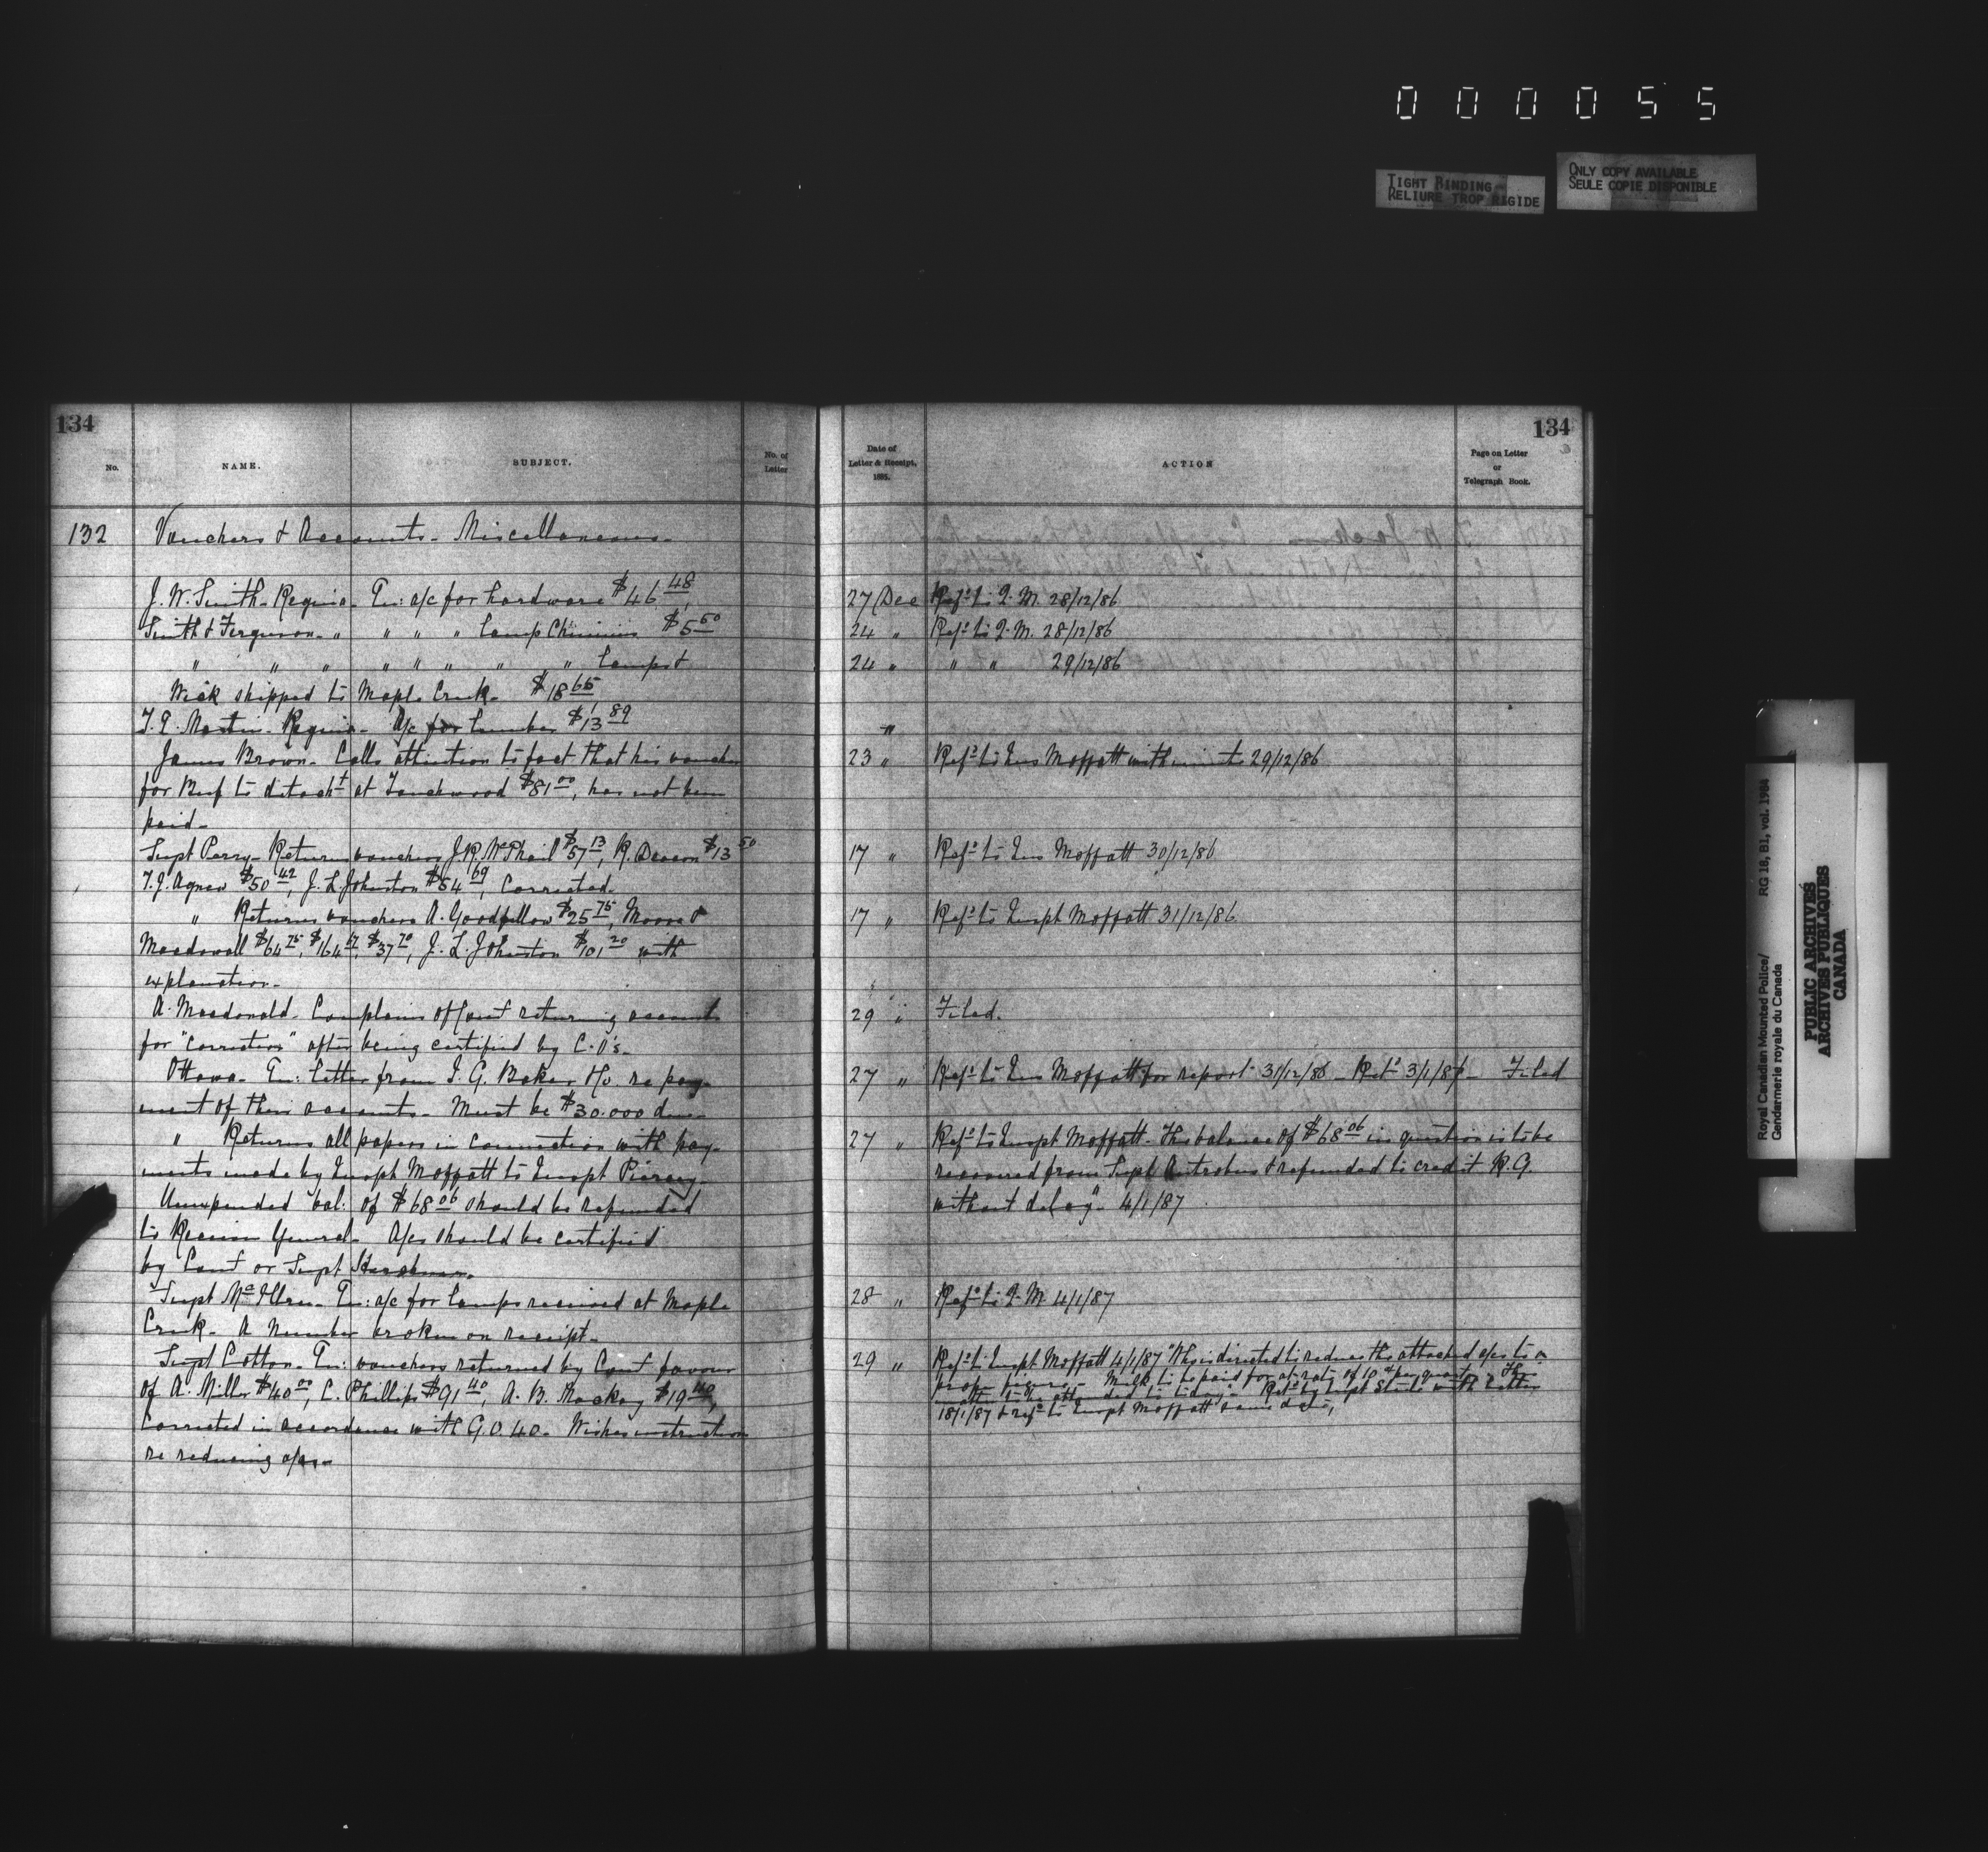 000055
TIGHT BINDING
RELIURE TROP RIGIDE
ONLY COPY AVAILABLE
SEULE COPIE DISPONIBLE
134
No.
NAME.
SUBJECT.
No. of
Letter
132
Vouchers & Accounts - Miscellaneous -
J. W. Smith - Regina - En: a/c for hardware $46.48
Smith & Ferguson - " " " " Lamp Chimnies $5.50
" " " " " " " " Lamps &
Wick shipped to Maple Creek - $18.65
Martin - Regina - A/c for Lumber $13.89
James Brown - Calls attention to fact that his voucher
for Beef to detacht at Touchwood $81.00, has not been
paid -
Supt Perry - Returns vouchers J.R. McPhail $57.13, R. Deacon $13.50
T.J. Agnew $50.42, J. L. Johnston $54.69, Corrected.
" Returns vouchers A. Goodfellow $25.75, Moore &
Macdowall $64.75, $37.70, J. L. Johnston $101.20 with
explanation -
A. Macdonald - Complains of Comr returning accounts
for "correction" after being certified by C.O's -
Ottawa - En: Letter from I. G. Baker &Co. re pay-
ment of their accounts - Must be $30.000 due -
" Returns all papers in connection with pay-
ments made by Inspt Moffatt to Inspt Piercy -
Unexpended bal: of $68.06 should be refunded
to Receiver General - A/cs should be certified
by Comr or Supt Herchmer.
Supt McIllree - En: a/c for Lamps received at Maple
Creek - A Number broken on receipt -
Supt Cotton - En: vouchers returned by Comr favour
of A. Miller $40.00, C. Phillips $91.40, A. B. Mackay $19.40,
Corrected in accordance with G.O. 40 - Wishes instructions
re reducing a/cs -
134
Date of
Letter & Receipt,
1885.
ACTION
Page on Letter
or
Telegraph Book.
27 Dec Refd to Q. M. 28/12/86
24 " Refd to Q. M. 28/12/86
24 " " " 29/12/86
"
23 " Refd to Ins Moffatt with minute 29/12/86
17 " Refd to Ins Moffatt 30/12/86
17 " Refd to Inspt Moffatt 31/12/86
29 " Filed.
27 " Refd to Ins Moffatt for report 31/12/86 - Retd 3/1/87 - Filed
27 " Refd to Inspt Moffatt - The balance of $68.06 in question is to be
recovered from Supt Antrobus & refunded to credit R.G.
without delay" 4/1/87
28 " Refd to Q. M. 4/1/87
29 " Refd to Inspt Moffatt 4/1/87 "Who is directed to reduce the attached a/cs to a
proper figure - Milk to be paid for at rate of 10 per quart - The
matter to be attended to today" - Retd by Inspt Steele with Letter
18/1/87 & refd to Inspt Moffatt same date,
Royal Canadian Mounted Police/ RG 18, B1, vol. 1984
Gendarmerie royale du Canada
PUBLIC ARCHIVES
ARCHIVES PUBLIQUES
CANADA